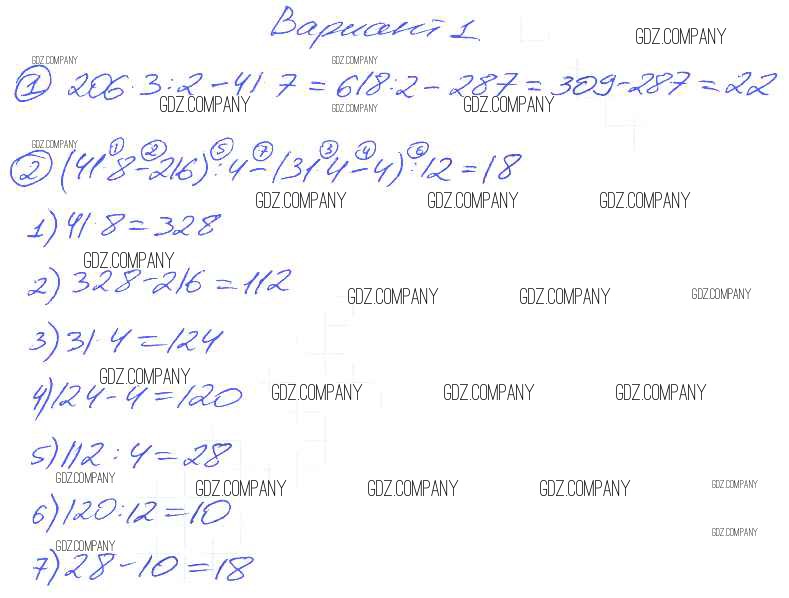 Вариант 1
GDZ.COMPANY
GDZ.COMPANY GDZ.COMPANY
① 206·3:2-41·7=618:2-287=309-287=22
GDZ.COMPANY GDZ.COMPANY GDZ.COMPANY
GDZ.COMPANY
1 2 5 7 3 4 6
② (41·8-216):4-(31·4-4):12=18
GDZ.COMPANY GDZ.COMPANY GDZ.COMPANY
1) 41·8=328
GDZ.COMPANY
2) 328-216=112
GDZ.COMPANY GDZ.COMPANY GDZ.COMPANY
3) 31·4=124
GDZ.COMPANY
4) 124-4=120
GDZ.COMPANY GDZ.COMPANY GDZ.COMPANY
5) 112:4=28
GDZ.COMPANY
GDZ.COMPANY GDZ.COMPANY GDZ.COMPANY GDZ.COMPANY
6) 120:12=10
GDZ.COMPANY
GDZ.COMPANY
7) 28-10=18